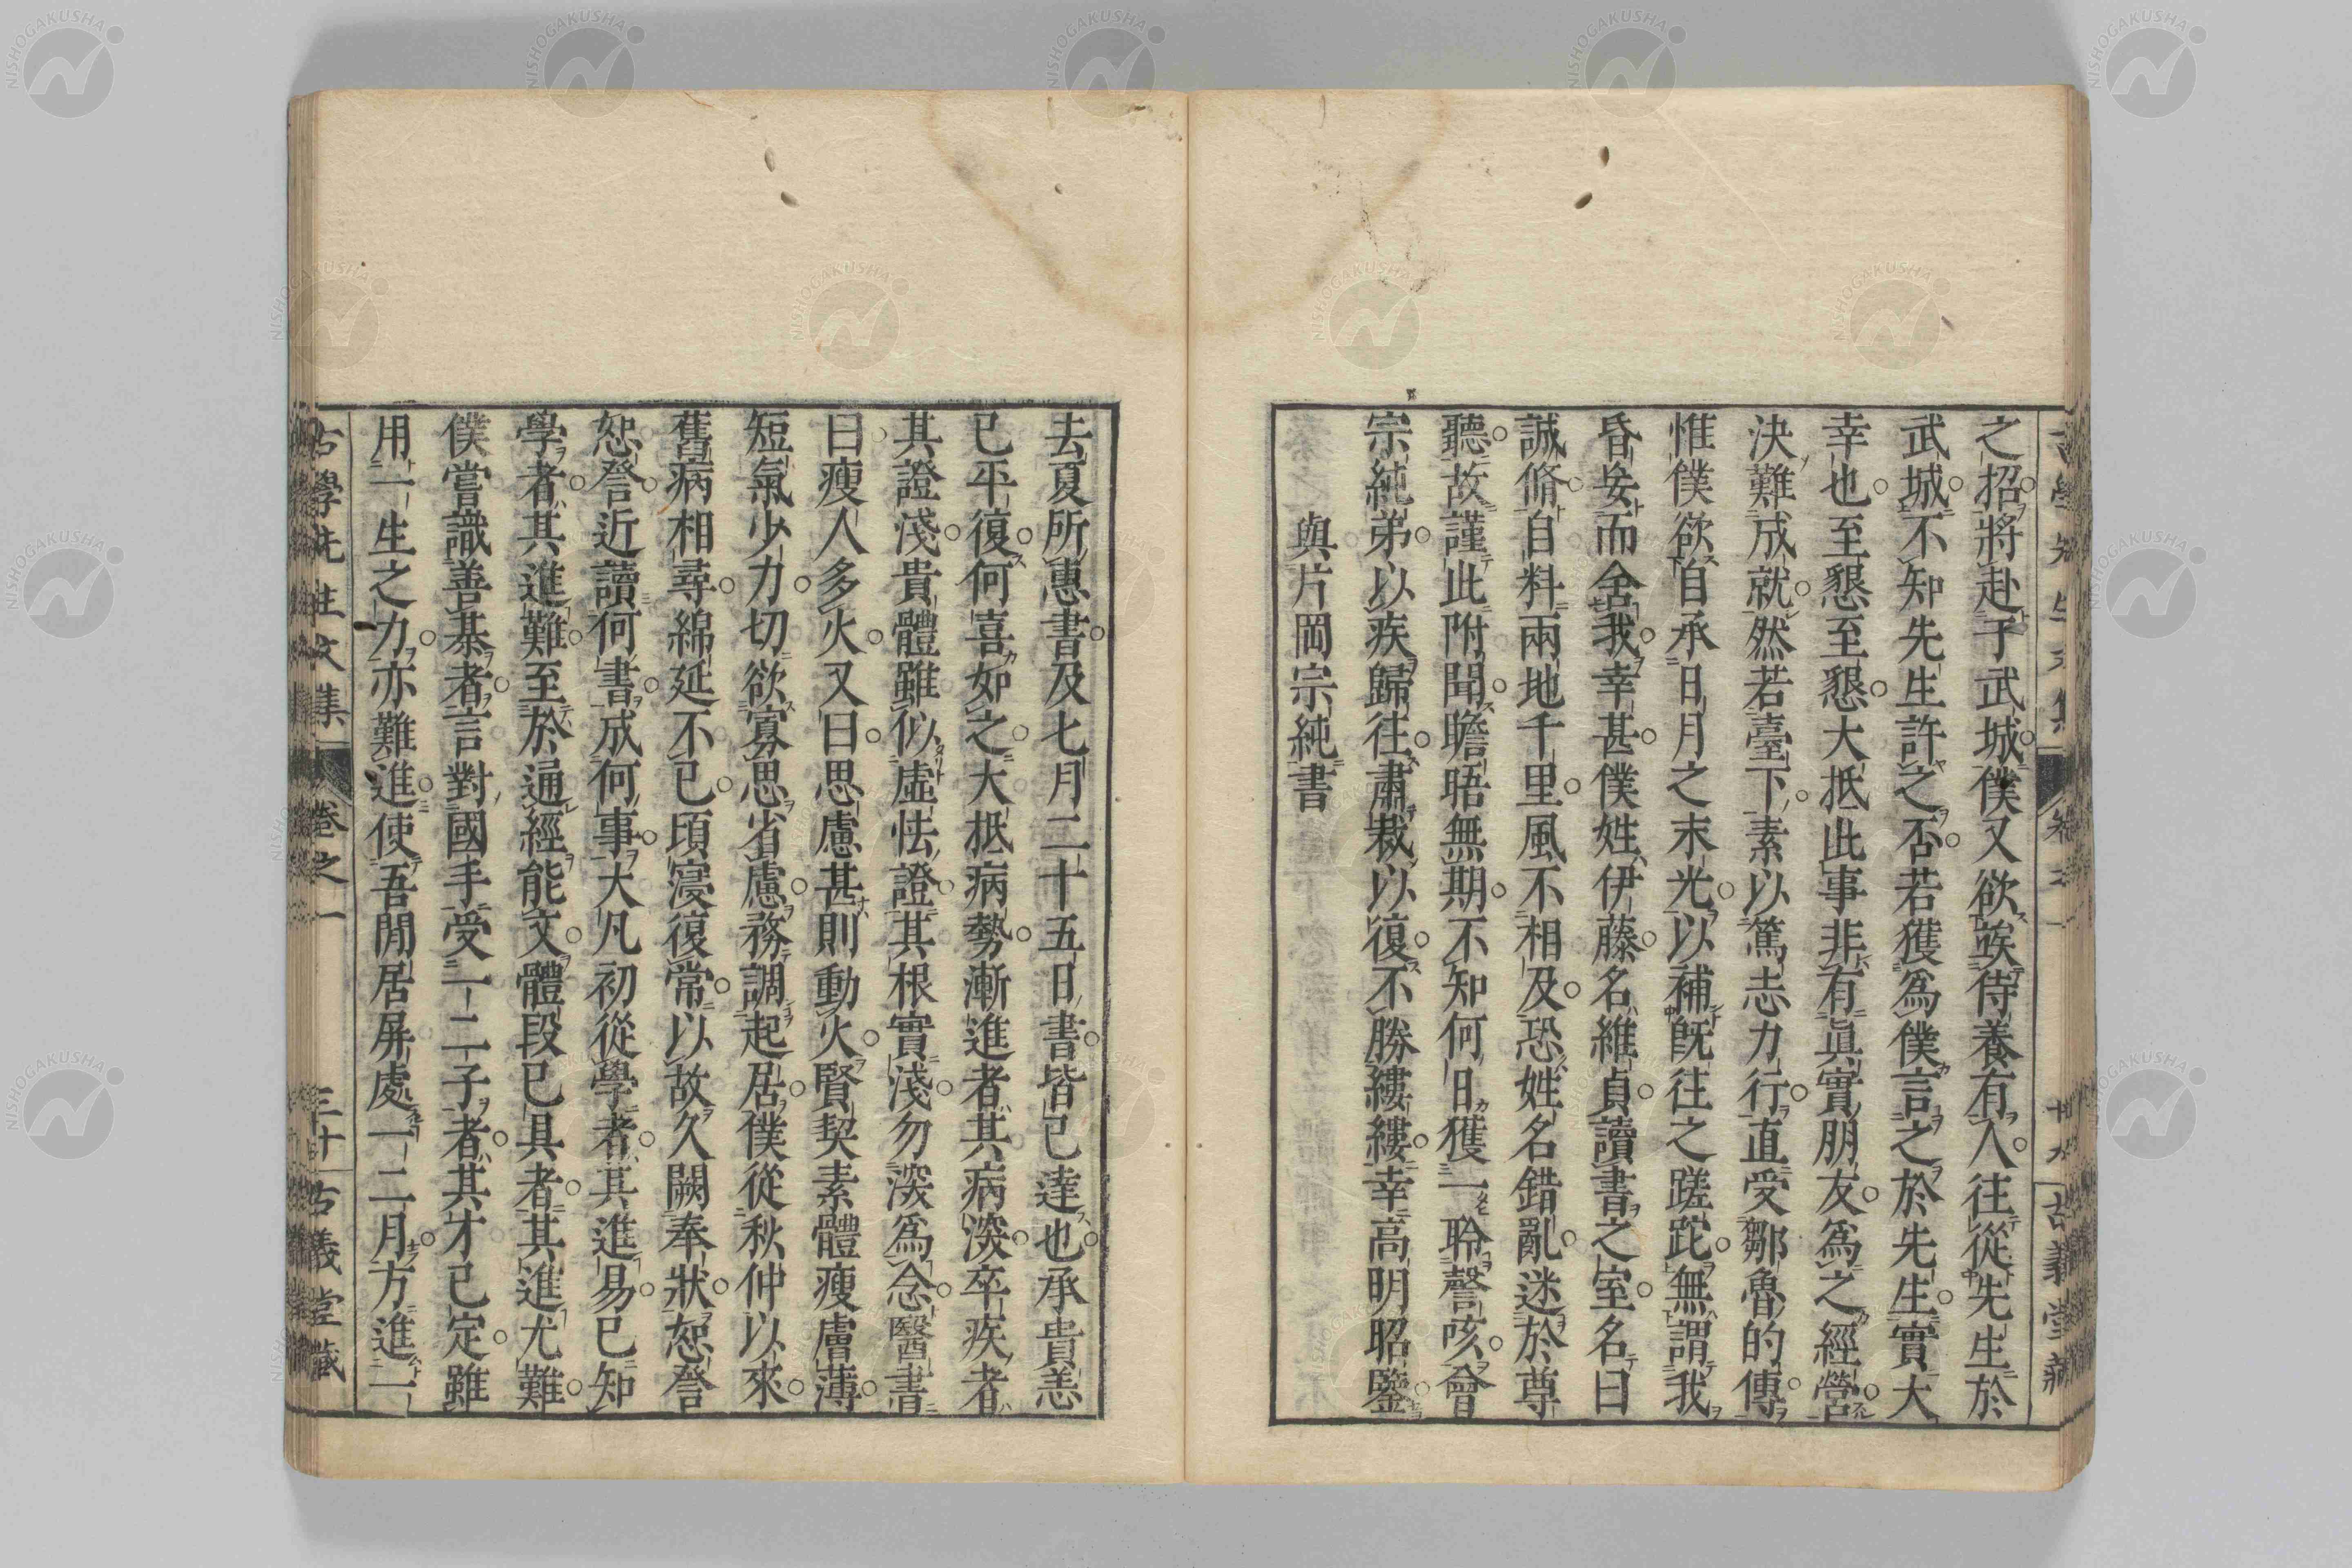 之招將赴于武城僕又欲竢侍養有人往從先生於
武城不知先生許之否若獲爲僕言之於先生實大
幸也至懇至懇大抵此事非有眞實朋友爲之經營
決難成就然若臺下素以篤志力行直受鄒魯的傳
惟僕欲自承日月之末光以補旣往之蹉跎無謂我
昏耄而舍我幸甚僕姓伊藤名維貞讀書之室名曰
誠脩自料兩地千里風不相及恐姓名錯亂迷於尊
聽故謹此附聞瞻晤無期不知何日獲一聆謦咳會
宗純弟以疾歸往肅裁以復不勝縷縷幸高明昭鑒
與片岡宗純書
去夏所惠書及七月二十五日書皆已達也承貴恙
已平復何喜如之大抵病勢漸進者其病淡卒疾者
其證淺貴體雖似虛怯證其根實淺勿淡爲念醫書
曰瘦人多火又曰思慮甚則動火賢契素體瘦膚薄
短氣少力切欲寡思省慮務調起居僕從秋仲以來
舊病相尋綿延不已頃寖復常以故久闕奉狀恕詧
恕詧近讀何書成何事大凡初從學者其進易已知
學者其進難至於通經能文體段已具者其進尤難
僕嘗識善碁者言對國手受一二子者其才已定雖
用一生之力亦難進使吾閒居屏處一二月方進一
古學先生文集 卷之一 三十 古義堂藏